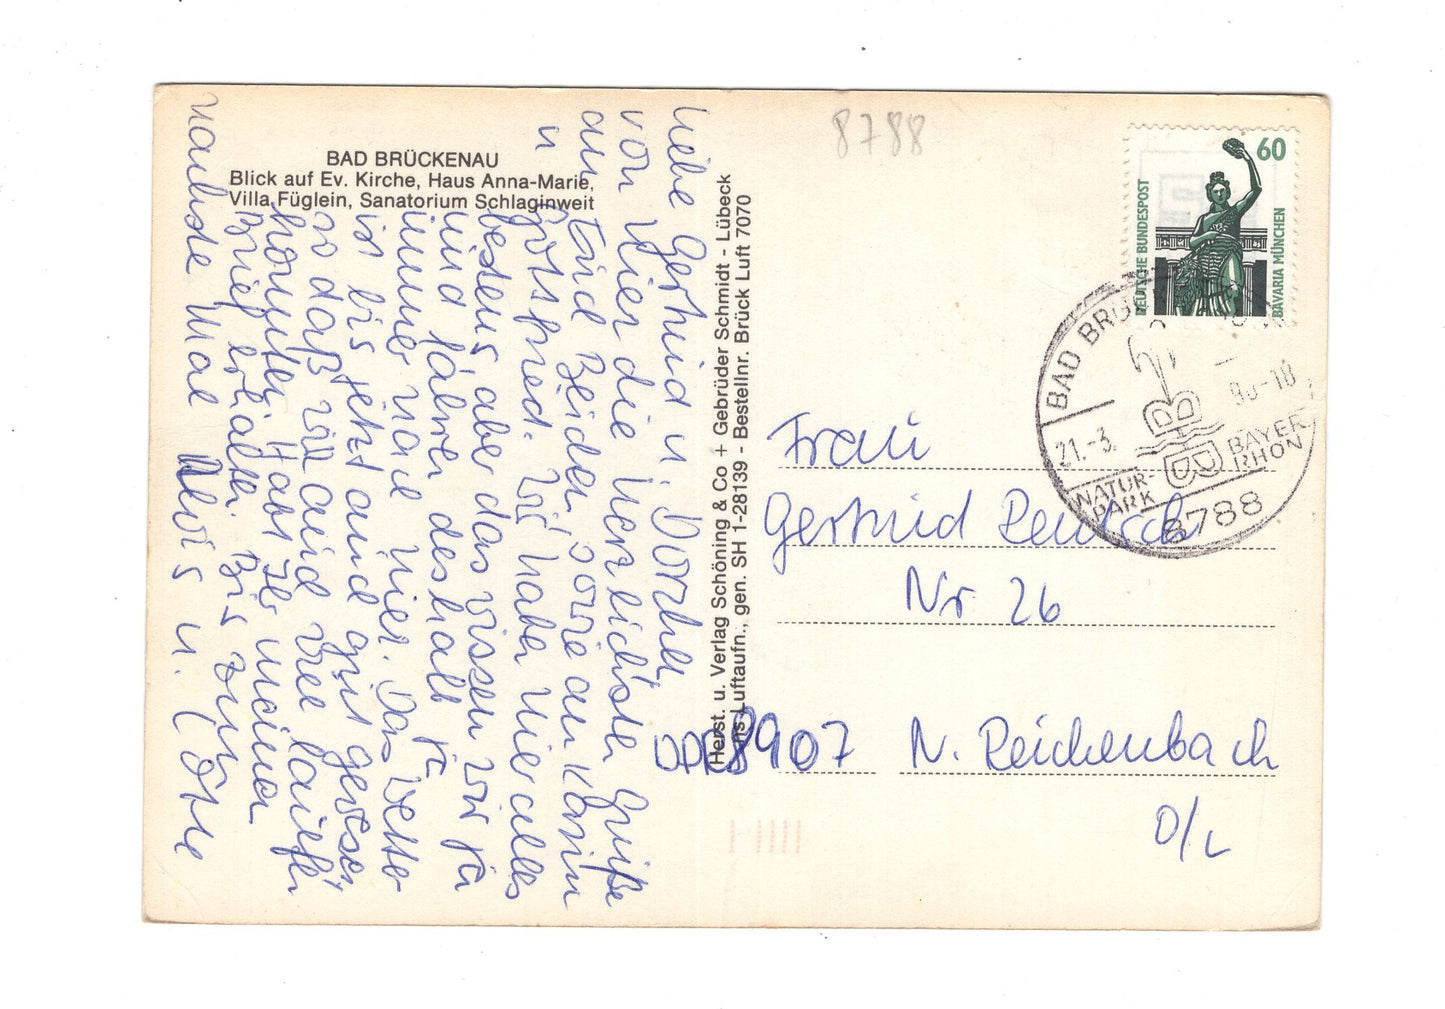 BAD BRÜCKENAU
Blick auf Ev. Kirche, Haus Anna-Marie,
Villa Füglein, Sanatorium Schlaginweit
Liebe Gertrud u.
von hier die herzlichsten Grüße
an Euch Beiden, sowie an Karin
u
Gottfried. Wir haben hier alles
bestens aber das wissen wir ja
und fahren deshalb ja
immer nach hier. Das Wetter
ist bis jetzt auch gut gewesen
so daß wir auch viel laufen
konnten. Habt Ihr meinen
Brief erhalten. Bis zum
nächste Mal Alois u.
Herst. u. Verlag Schöning & Co + Gebrüder Schmidt - Lübeck
Luftaufn., gen. SH 1-28139 - Bestellnr. Brück Luft 7070
8788
60
DEUTSCHE BUNDESPOST
BAVARIA MÜNCHEN
BAD
21.-3. 90-18
NATUR-
PARK
BAYER
RHÖN
8788
Frau
Gertrud
Nr 26
DDR 8907 N. Reichenbach
O/L